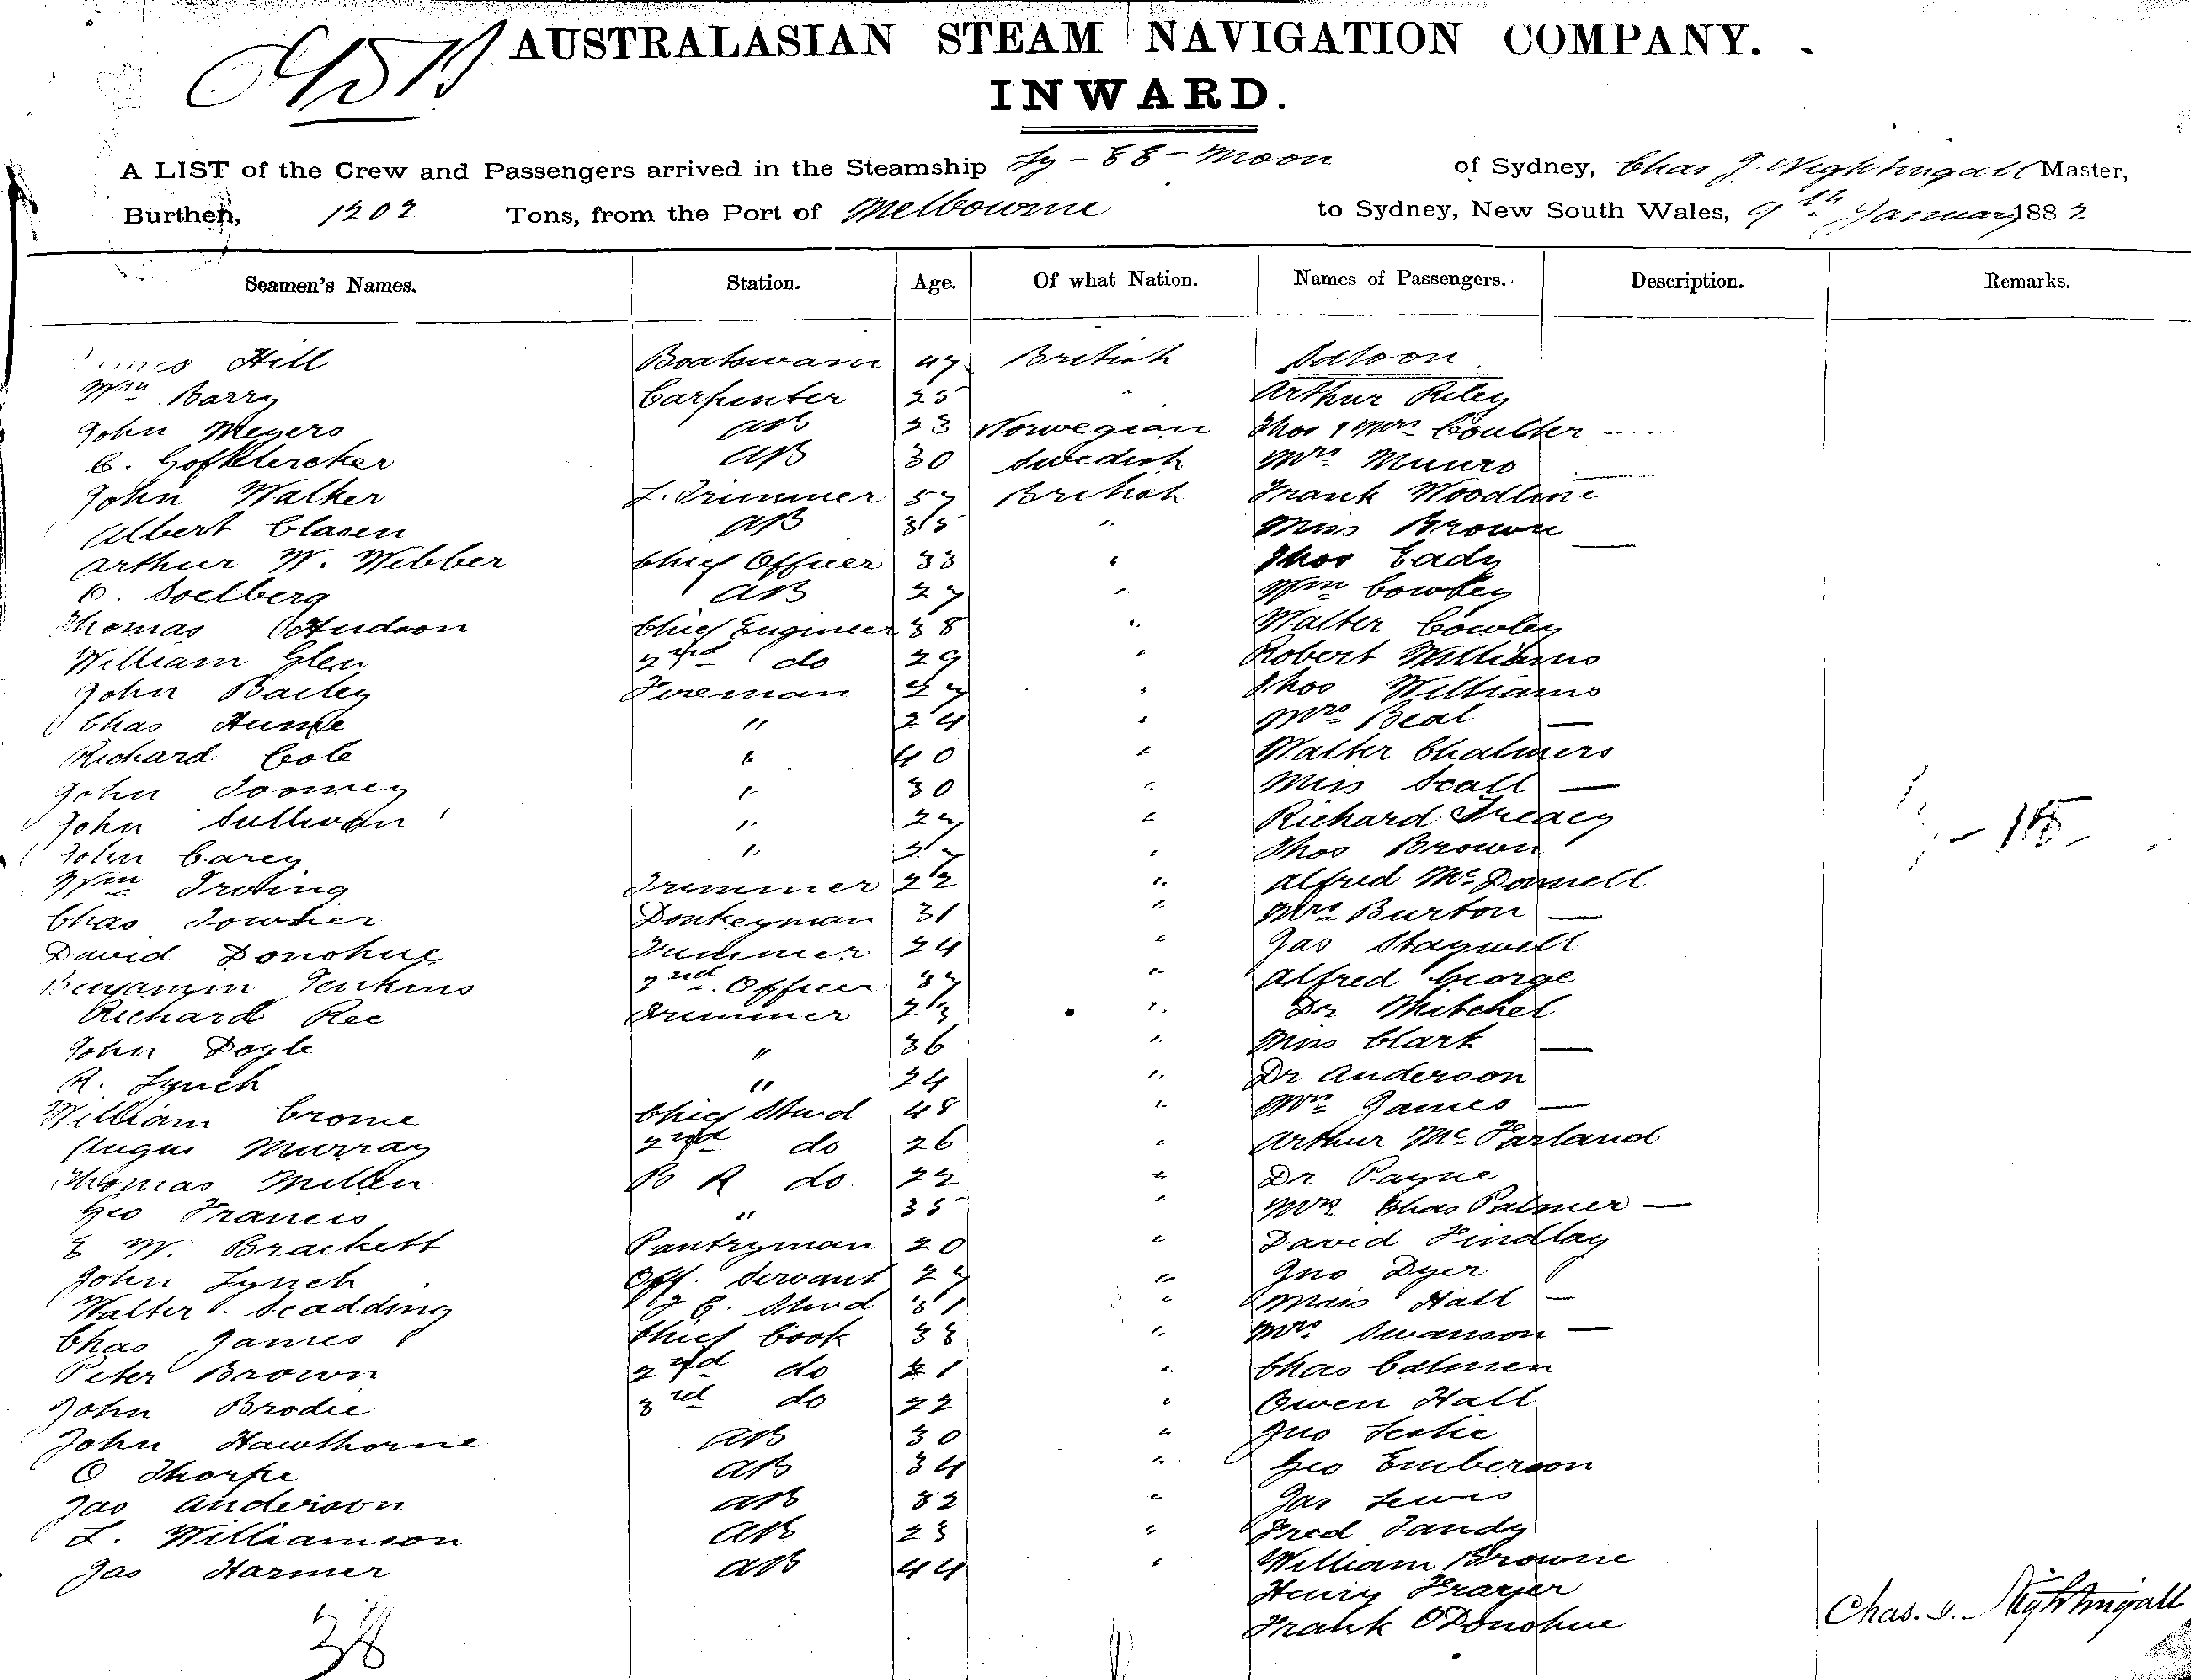 AUSTRALASIAN STEAM NAVIGATION COMPANY.
INWARD.
A LIST of the Crew and Passengers arrived in the Steamship Ly-EE-Moon of Sydney, Chas J. Nightingall Master,
Burthen, 1202 Tons, from the Port of Melbourne to Sydney, New South Wales, 9th January 1882
Seamen's Names. Station. Age. Of what Nation. Names of Passengers. Description. Remarks.
James Hill Boatswain 47 British Saloon
Wm Barry Carpenter 25 " Arthur Riley
John Meyers AB 23 Norwegian Thos & Mrs Coulter
C. AB 30 Swedish Mrs Munro —
John Walker L. Trimmer 57 British Frank Woodline
Albert Clasen AB 35 " Miss Brown —
Arthur W. Webber Chief Officer 33 " Thos Eady
O. Soelberg AB 27 " Wm Cowley
Thomas Hudson Chief Engineer 38 " Walter Cowley
William Glen 2nd do 29 " Robert Williams
John Bailey Fireman 27 " Thos Williams
Chas Hume " 24 " Mrs Beal —
Richard Cole " 40 " Walter Chalmers
John Toomey " 30 " Miss Scall —
John Sullivan " 27 " Richard Treacy
John Carey " 27 " Thos Brown
Wm Irving Trimmer 22 " Alfred McDonnell
Chas Towner Donkeyman 31 " Mrs Burton —
David Donohue Trimmer 24 " Jas Stagwell
Benjamin Jenkins 2nd Officer 37 " Alfred George
Richard Ree Trimmer 23 " Dr Mitchel
John Doyle " 36 " Miss Clark —
R. Lynch " 24 " Dr Anderson
William Crome Chief Stwd 48 " Mrs James —
Angus Murray 2nd do 26 " Arthur McFarland
Thomas Millen B R do. 22 " Dr Payne
Geo Francis " 35 " Mrs Chas Palmer —
E W. Brackett Pantryman 20 " David Findlay
John Lynch Off. Servant 27 " Jno Dyer
Walter Scadding F C. Stwd 31 " Miss Hall —
Chas James Chief Cook 38 " Mrs Swanson —
Peter Brown 2nd do 21 " Chas Calmen
John Brodie 3rd do 22 " Owen Hall
John Hawthorne AB 30 " Jno Leslie
O Thorpe AB 34 " Geo Emberson
Jas Anderson AB 32 " Jas Lewis
L. Williamson AB 23 " Fred Tandy
Jas Harmer AB 44 " William Browne
Henry Frazer
Frank O'Donohue
38
Chas. J. Nightingall